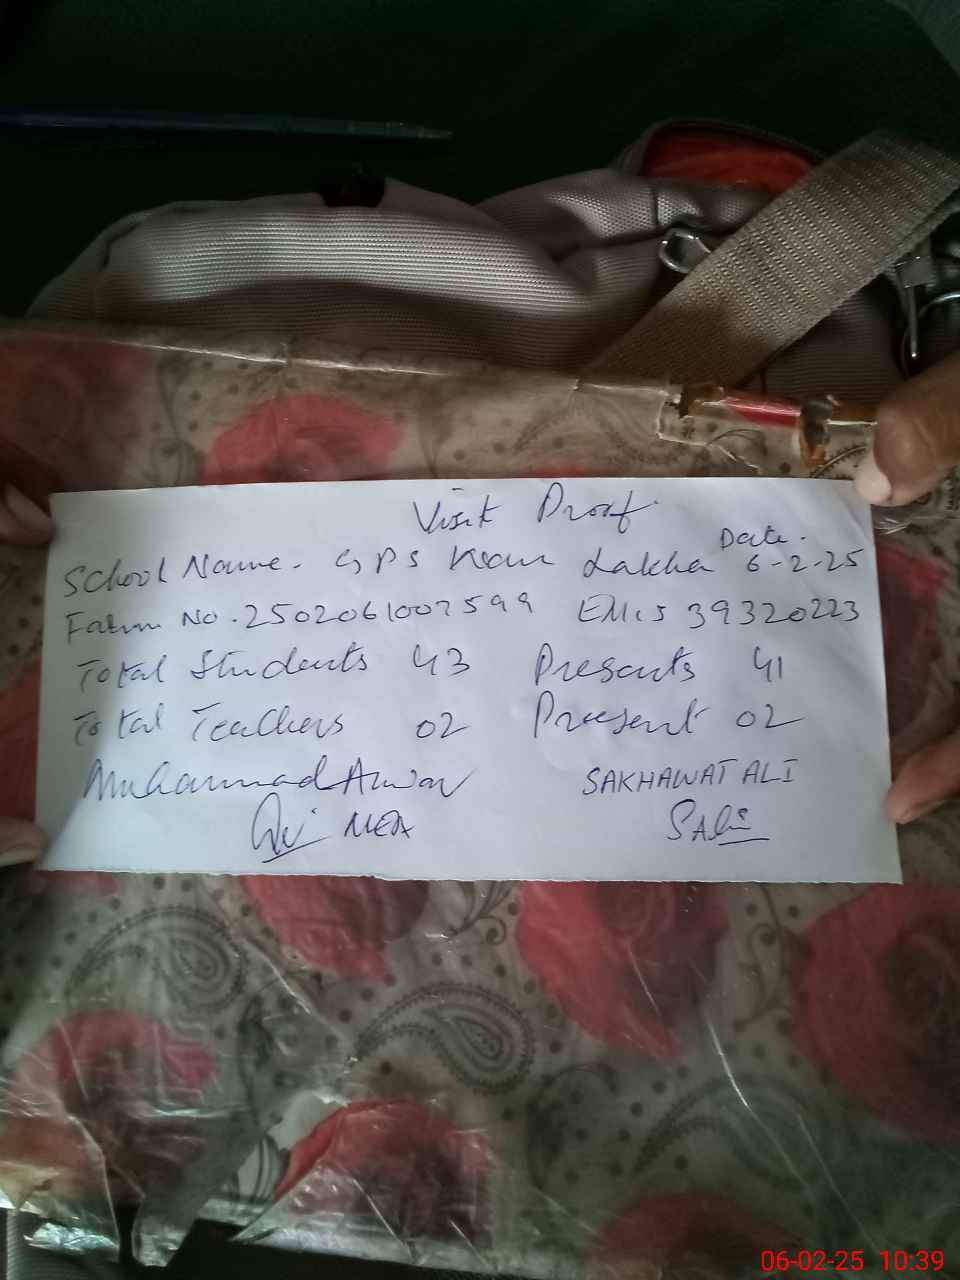 Visit Proof
Date.
School Name. GPS Lakha 6-2-25
No. 2502061007599 EMIS 39320223
Total Students 43 Presents 41
Total Teachers 02 Present 02
Muhammad Anwar SAKHAWAT ALI
MEA
06-02-25 10:39